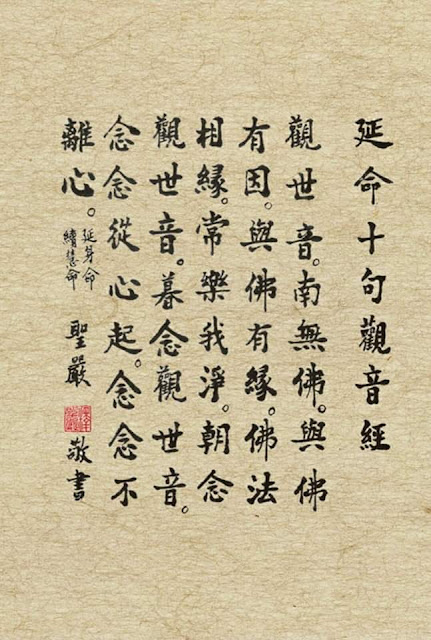 延命十句觀音經
觀世音。南無佛。與佛
有因。與佛有緣。佛法
相緣。常樂我淨。朝念
觀世音。暮念觀世音。
念念從心起。念念不
離心。
延身命
續慧命
聖嚴 敬書